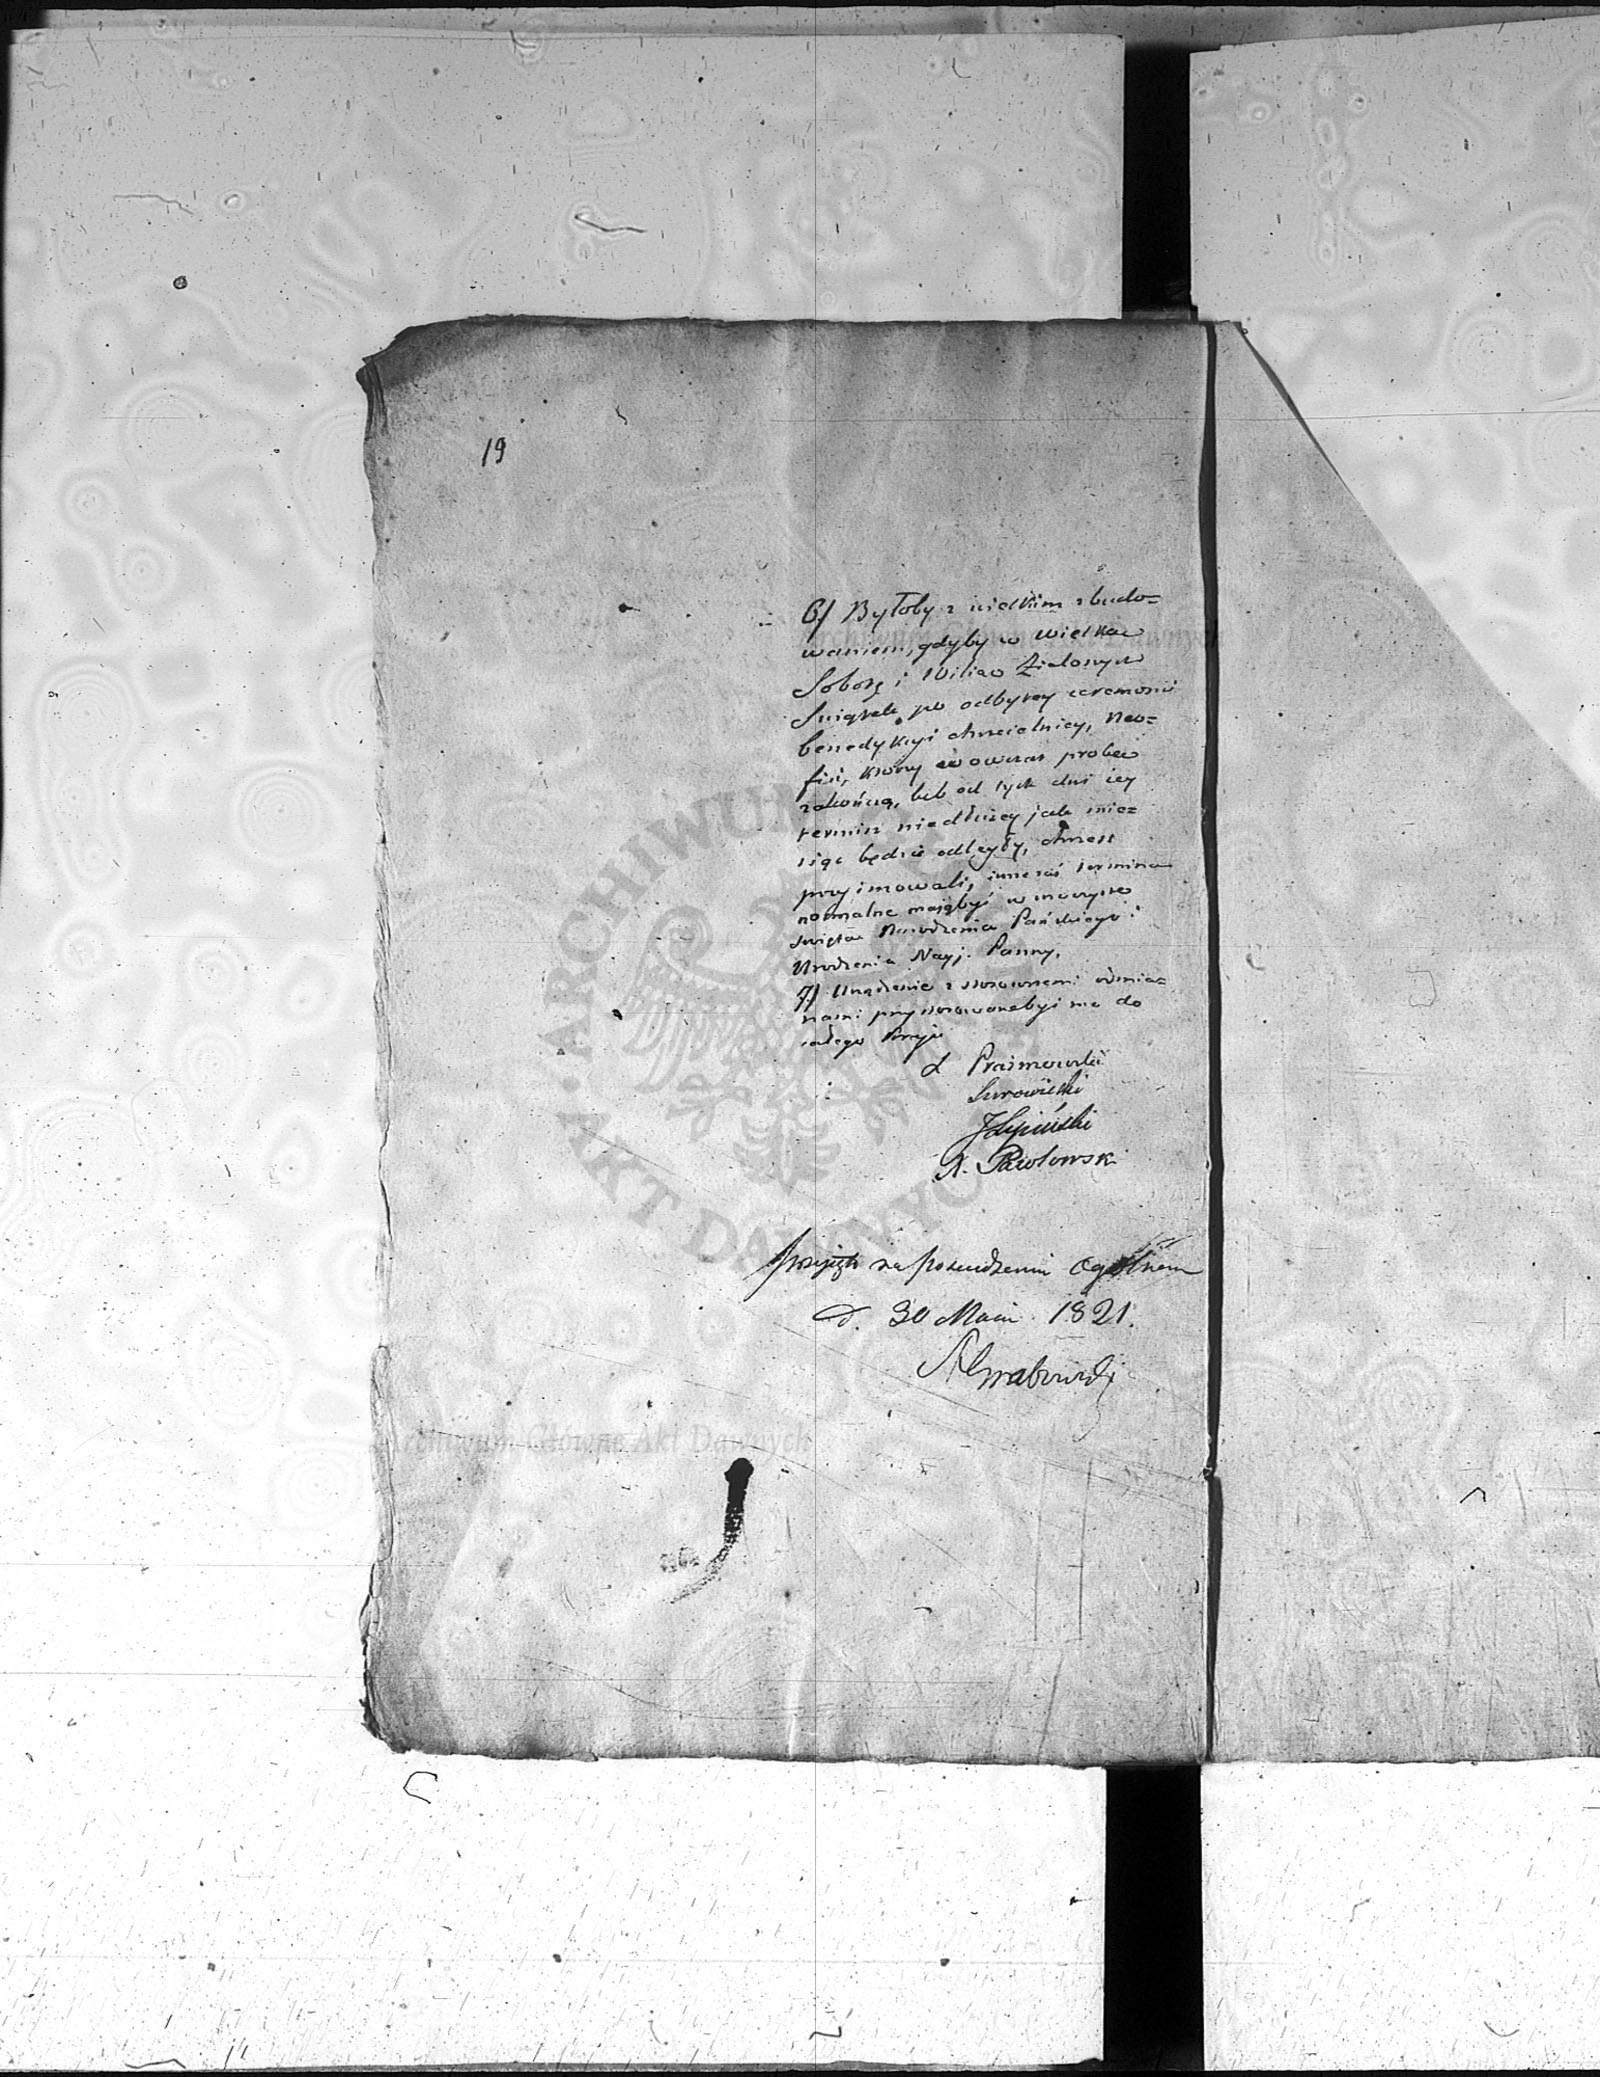 19
6) Byłoby z wielkim zbudo=
waniem, gdyby w wielką
Sobotę i Wilią Zielonych
Swiątek po odbytey ceremonii
benedykcyi chrzcielnicy, neo=
fici, którzy wówczas probę
zakończą, lub od tych dni iey
termin niedłużey jak mie=
siąc będzie odległy, chrzest
przyimowali, inne zaś termina
normalne mają być w uroczyste
święta Narodzenia Pańskiego i
Urodzenia Nayś. Panny.
7) Urządzenie z stosownemi odmia=
nami przystosowane być ma do
całego Kraju
Prażmowski
Surowiecki
J Lipiński
X. Pawłowski
Przyjęto na Posiedzeniu Ogólnem
d. 30 Maia 1821.
Grabowski
ARCHIWUM
AKT DAWNYCH
Archiwum Główne Akt Dawnych